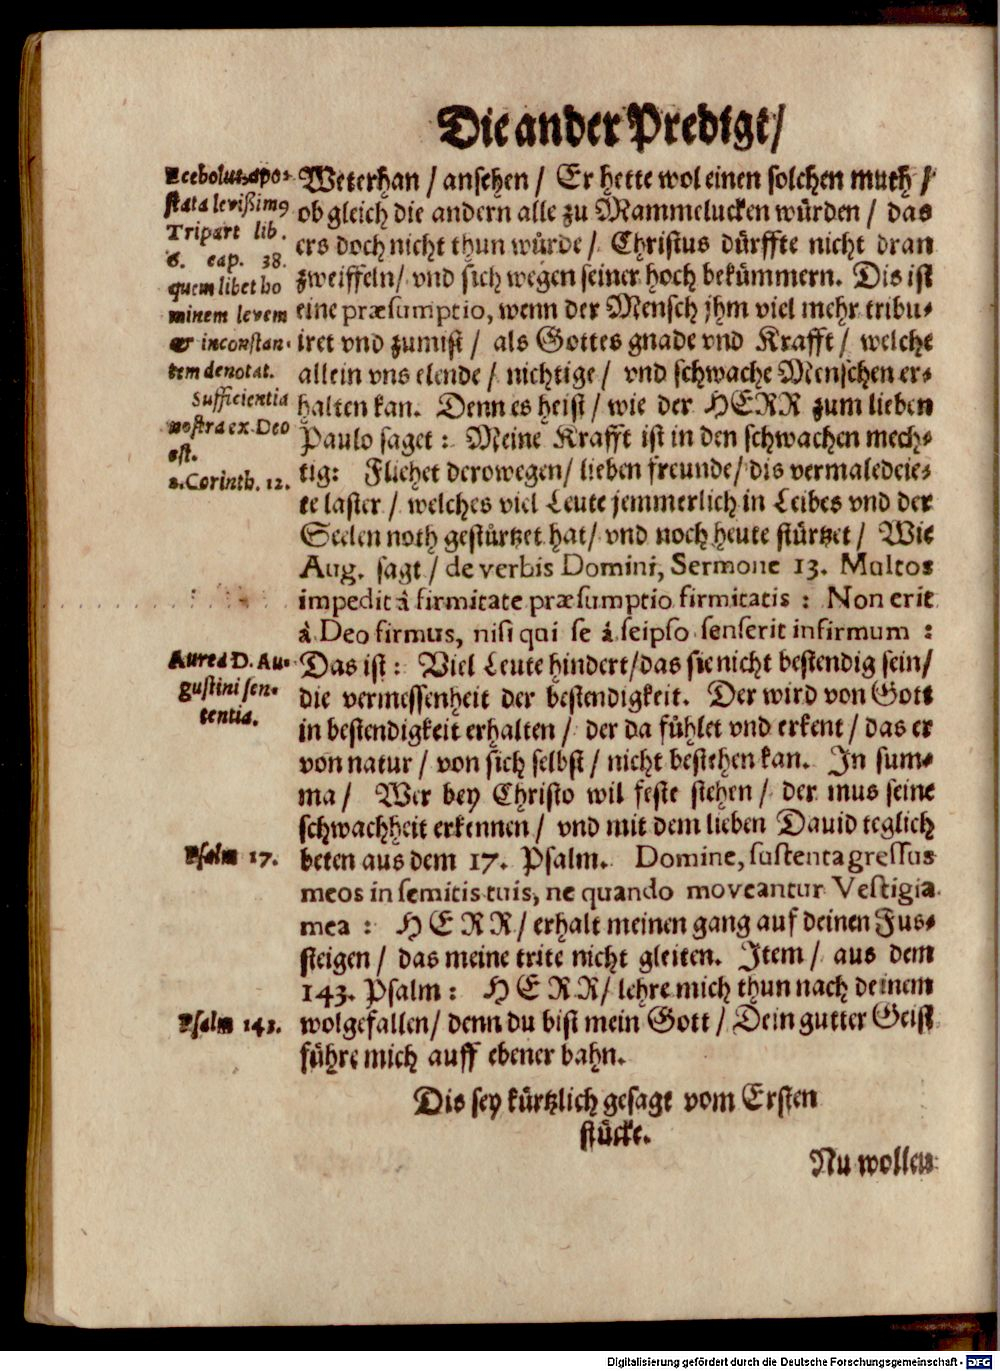 Die ander Predigt/
Ecebolus apo-
stata levißimꝰ
Tripart lib.
6. cap. 38.
quem libet ho
minem levem
& inconstan-
tem denotat.
Sufficientia
nostra ex Deo
est.
2. Corinth. 12.
Weterhan / ansehen / Er hette wol einen solchen muth /
ob gleich die andern alle zu Mammelucken würden / das
ers doch nicht thun würde / Christus dürffte nicht dran
zweiffeln / vnd sich wegen seiner hoch bekümmern. Dis ist
eine præsumptio, wenn der Mensch jhm viel mehr tribu-
iret vnd zumist / als Gottes gnade vnd Krafft / welche
allein vns elende / nichtige / vnd schwache Menschen er-
halten kan. Denn es heist / wie der HERR zum lieben
Paulo saget : Meine Krafft ist in den schwachen mech-
tig: Fliehet derowegen / lieben freunde / dis vermaledeie-
te laster / welches viel Leute jemmerlich in Leibes vnd der
Seelen noth gestürtzet hat / vnd noch heute stürtzet / Wie
Aug. sagt / de verbis Domini, Sermone 13. Multos
impedit á firmitate præsumptio firmitatis : Non erit
á Deo firmus, nisi qui se á seipso senserit infirmum :
Aurea D. Au-
gustini sen-
tentia.
Das ist : Viel Leute hindert / das sie nicht bestendig sein /
die vermessenheit der bestendigkeit. Der wird von Gott
in bestendigkeit erhalten / der da fühlet vnd erkent / das er
von natur / von sich selbst / nicht bestehen kan. In sum-
ma / Wer bey Christo wil feste stehen / der mus seine
schwachheit erkennen / vnd mit dem lieben Dauid teglich
Psalm 17.
beten aus dem 17. Psalm. Domine, sustenta gressus
meos in semitis tuis, ne quando moveantur Vestigia
mea : HERR / erhalt meinen gang auf deinen Fus-
steigen / das meine trite nicht gleiten. Item / aus dem
143. Psalm : HERR / lehre mich thun nach deinem
Psalm 143.
wolgefallen / denn du bist mein Gott / Dein gutter Geist
führe mich auff ebener bahn.
Dis sey kürtzlich gesagt vom Ersten
stücke.
Nu wollen
Digitalisierung gefördert durch die Deutsche Forschungsgemeinschaft - DFG